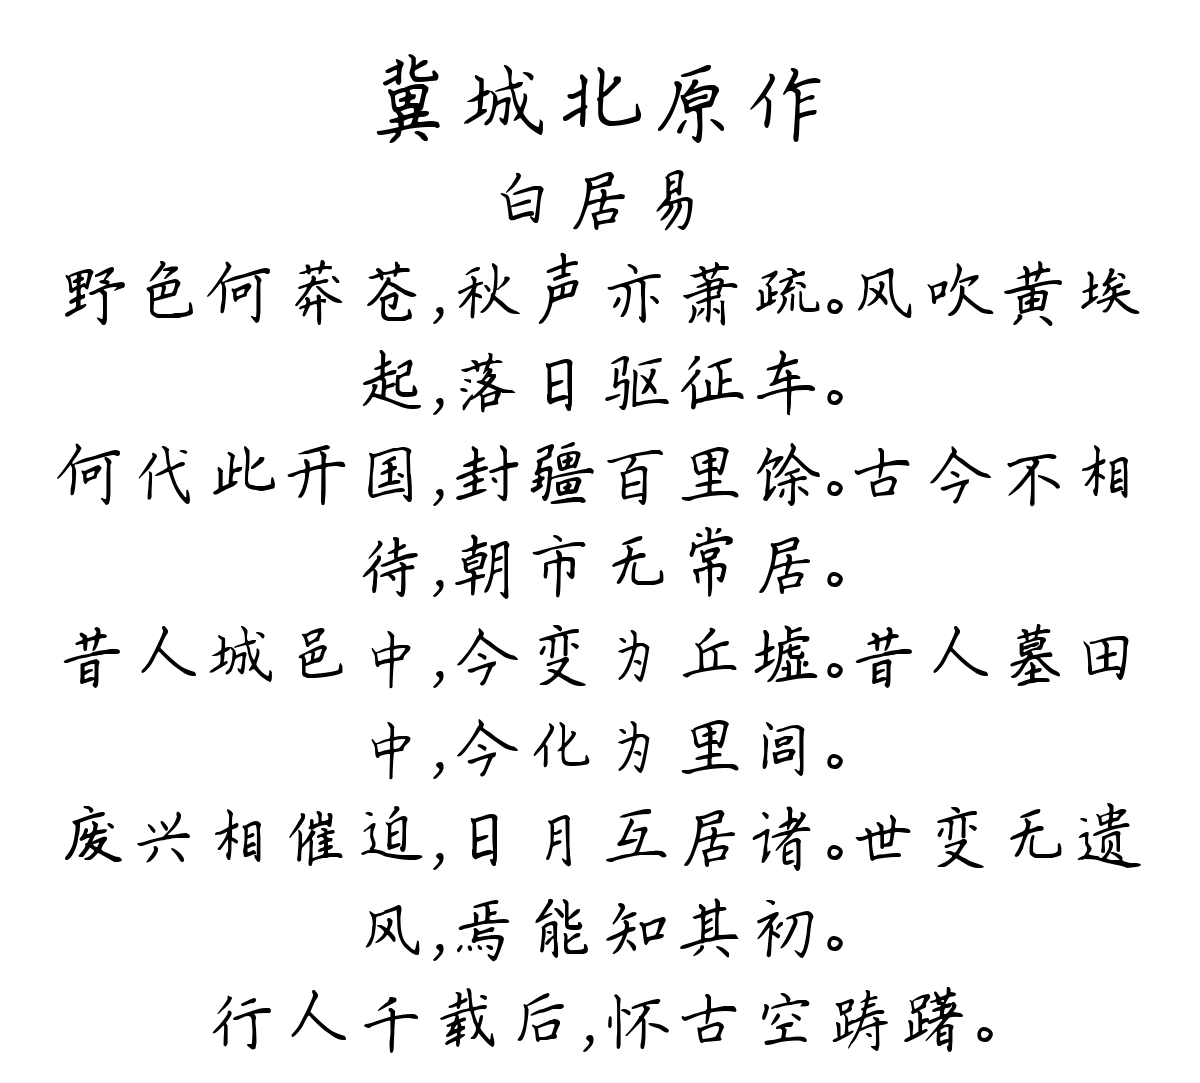 冀城北原作
白居易
野色何莽苍,秋声亦萧疏。风吹黄埃
起,落日驱征车。
何代此开国,封疆百里馀。古今不相
待,朝市无常居。
昔人城邑中,今变为丘墟。昔人墓田
中,今化为里闾。
废兴相催迫,日月互居诸。世变无遗
风,焉能知其初。
行人千载后,怀古空踌躇。